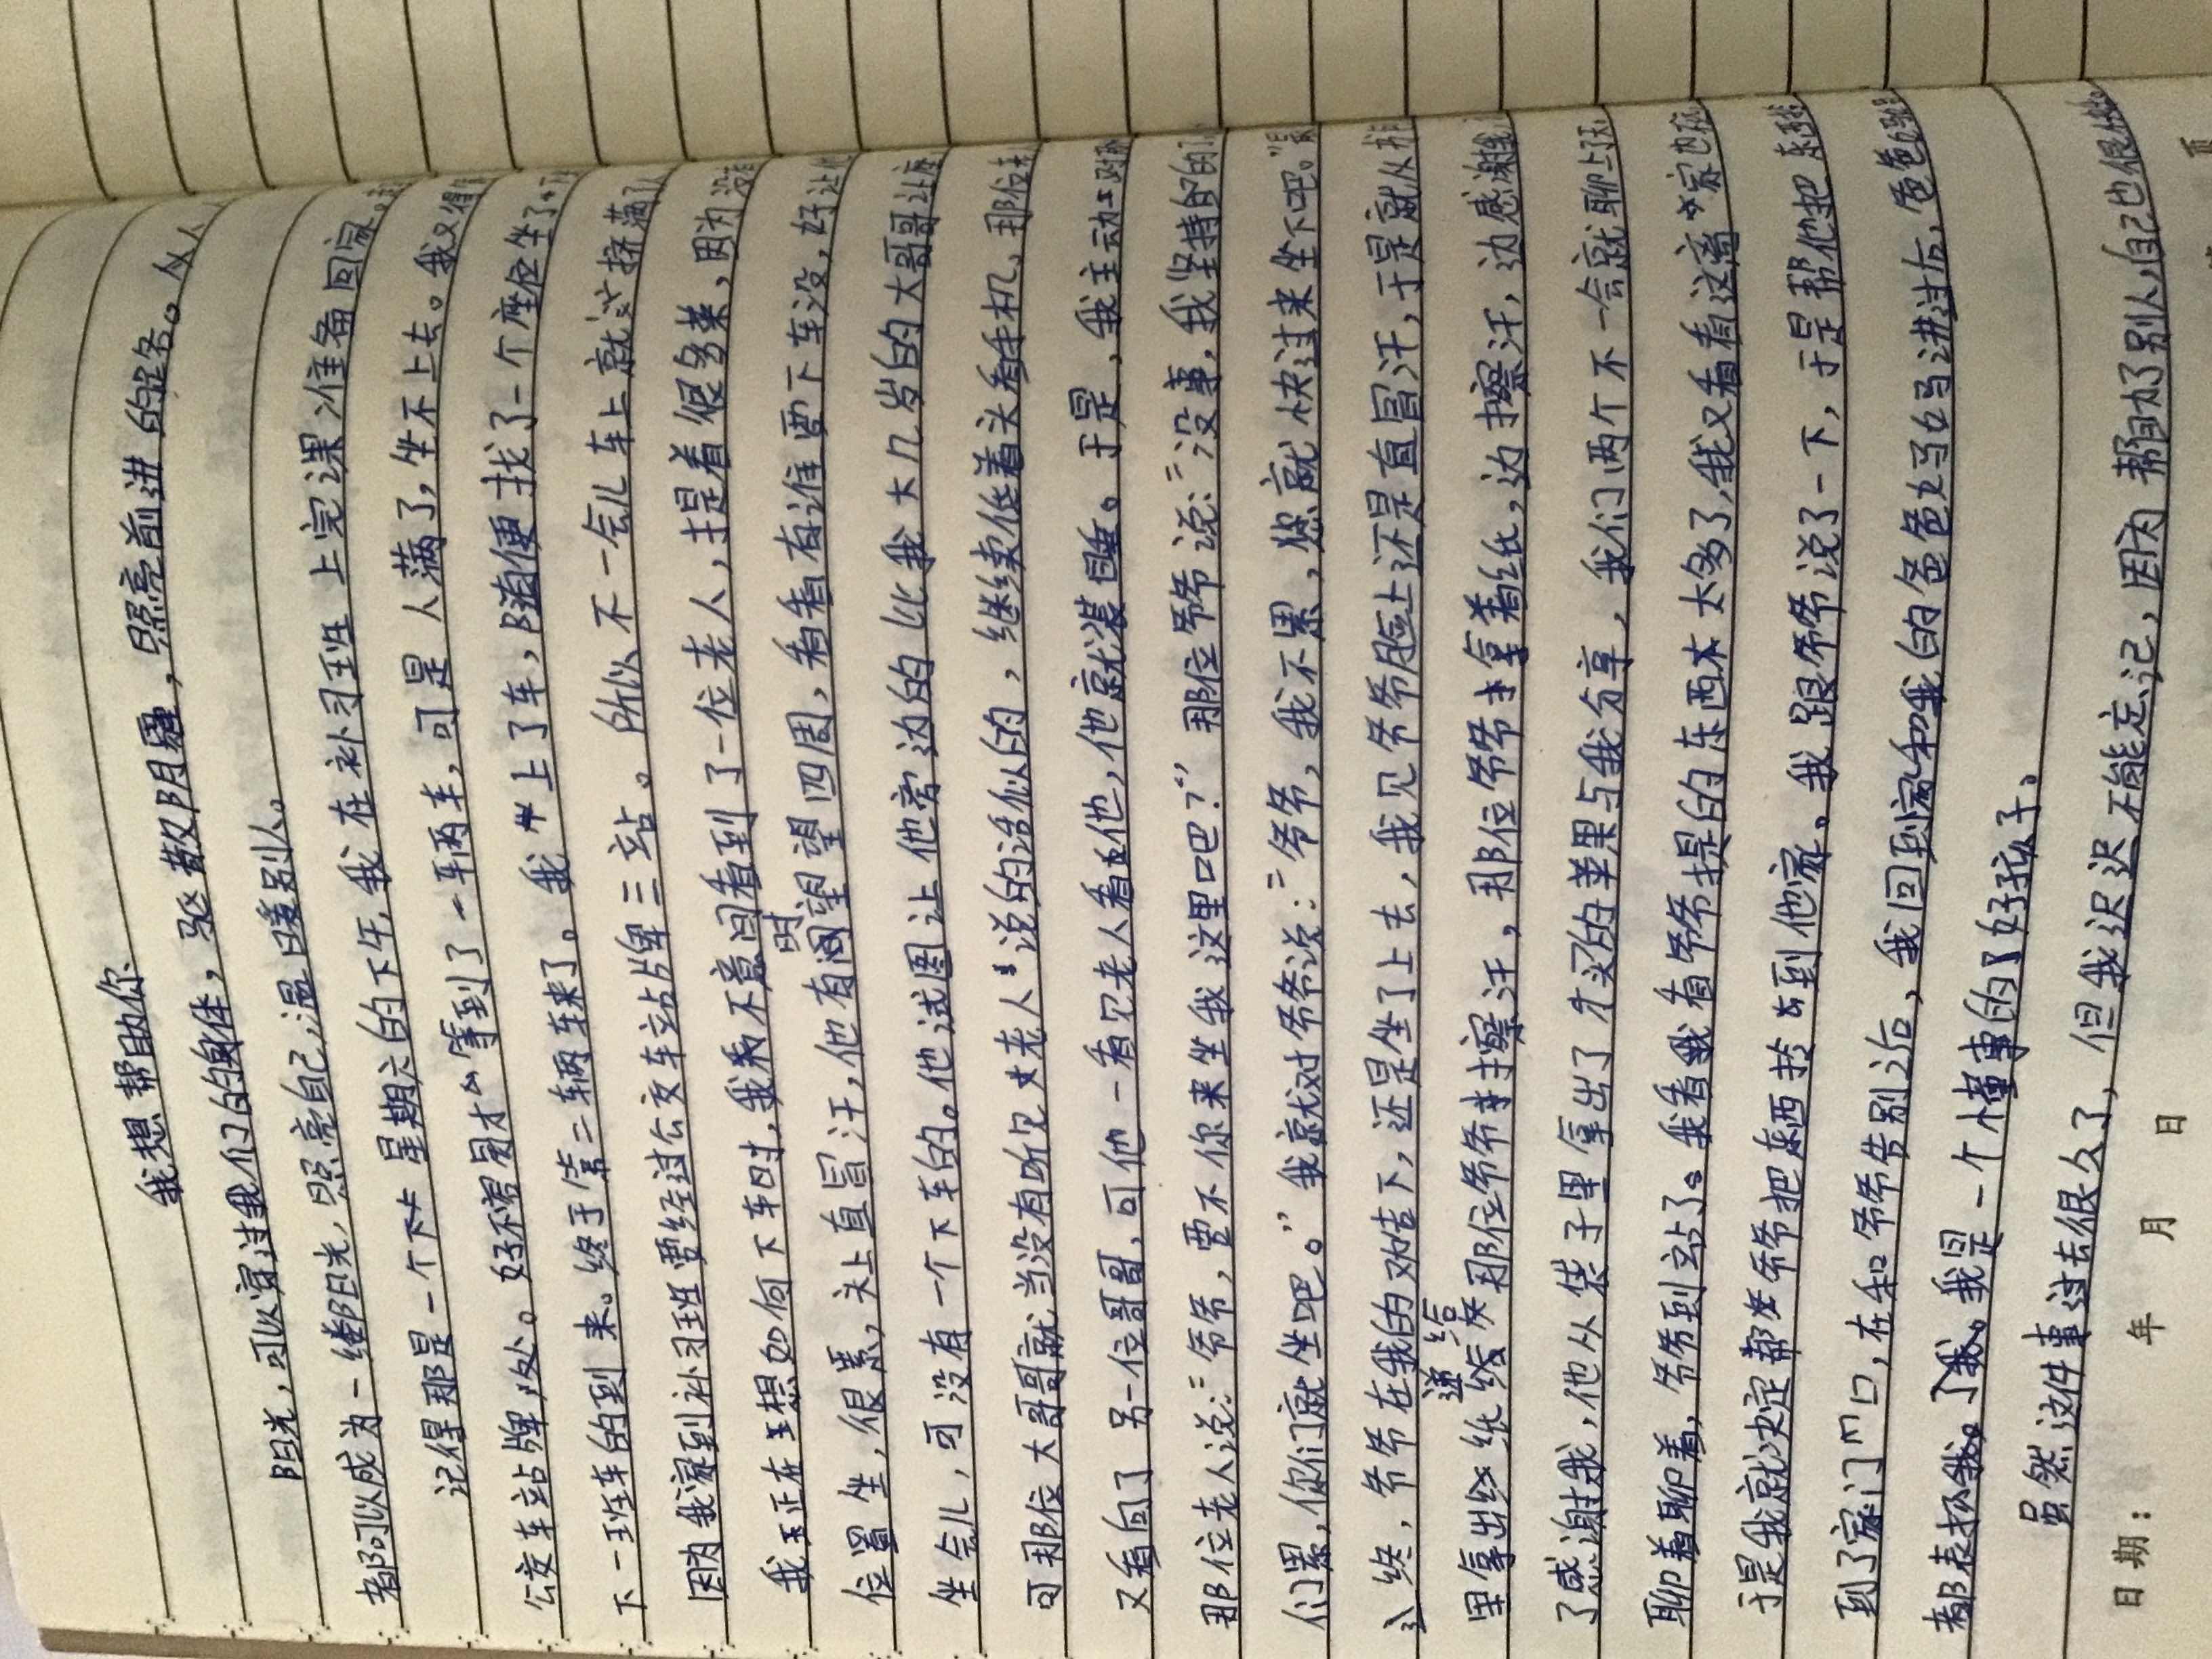 我想帮助你
阳光,可以穿过我们的身体,驱散阴霾,照亮前进的路。人人
都可以成为一缕阳光,照亮自己,温暖别人。
记得那是一个星期六的下午,我在补习班上完课准备回家。
公交车站牌处。好不容易才等到了一车两车,可是人满了,坐不上去。我又得
下一班车的到来。终于第二辆车来了。我上了车,随便找了一个座位坐了下
因为我家到补习班要经过公交车站牌三站。所以不一会儿车上就挤满了人
我正在想如何下车时,我不意间看到了一位老人,提着很多菜,因为没有
位置坐,很累,头上直冒汗,他有时望望四周,看看有谁要下车没,好让他
坐会儿,可没有一个下车的。他试图让他旁边的比我大几岁的大哥哥让座
可那位大哥哥就当没有听见老人说的话似的,继续低着头看手机,那位老
又看向了另一位哥哥,可他一看见老人看他,他就装睡。于是,我主动
那位老人说:“爷爷,要不你来坐我这里吧?”那位爷爷说:“没事,我坚持的
们累,你们就坐吧。”我就对爷爷说:“爷爷,我不累,您就快过来坐下吧。”最
终,爷爷在我的劝告下,还是坐了上去,我见爷爷脸上还是直冒汗,于是就从书
里拿出纸递给那位爷爷擦汗,那位爷爷拿着纸,边擦汗,边感谢我
了感谢我,他从袋子里拿出了才买的苹果与我分享,我们两个不一会就聊上
聊着聊着,爷爷到站了。我看爷爷提的东西太多了,我又看看这离家
于是我就决定帮爷爷把东西拎到他家。我跟爷爷说了一下,于是帮他把东西
到了家门口,在和爷爷告别后,我回到家和我的爸爸妈妈讲过后,爸爸
都表扬了我。我是一个懂事的好孩子。
虽然这件事过去很久了,但我迟迟不能忘记,因为帮助了别人自己也很快
日期: 年 月 日
页